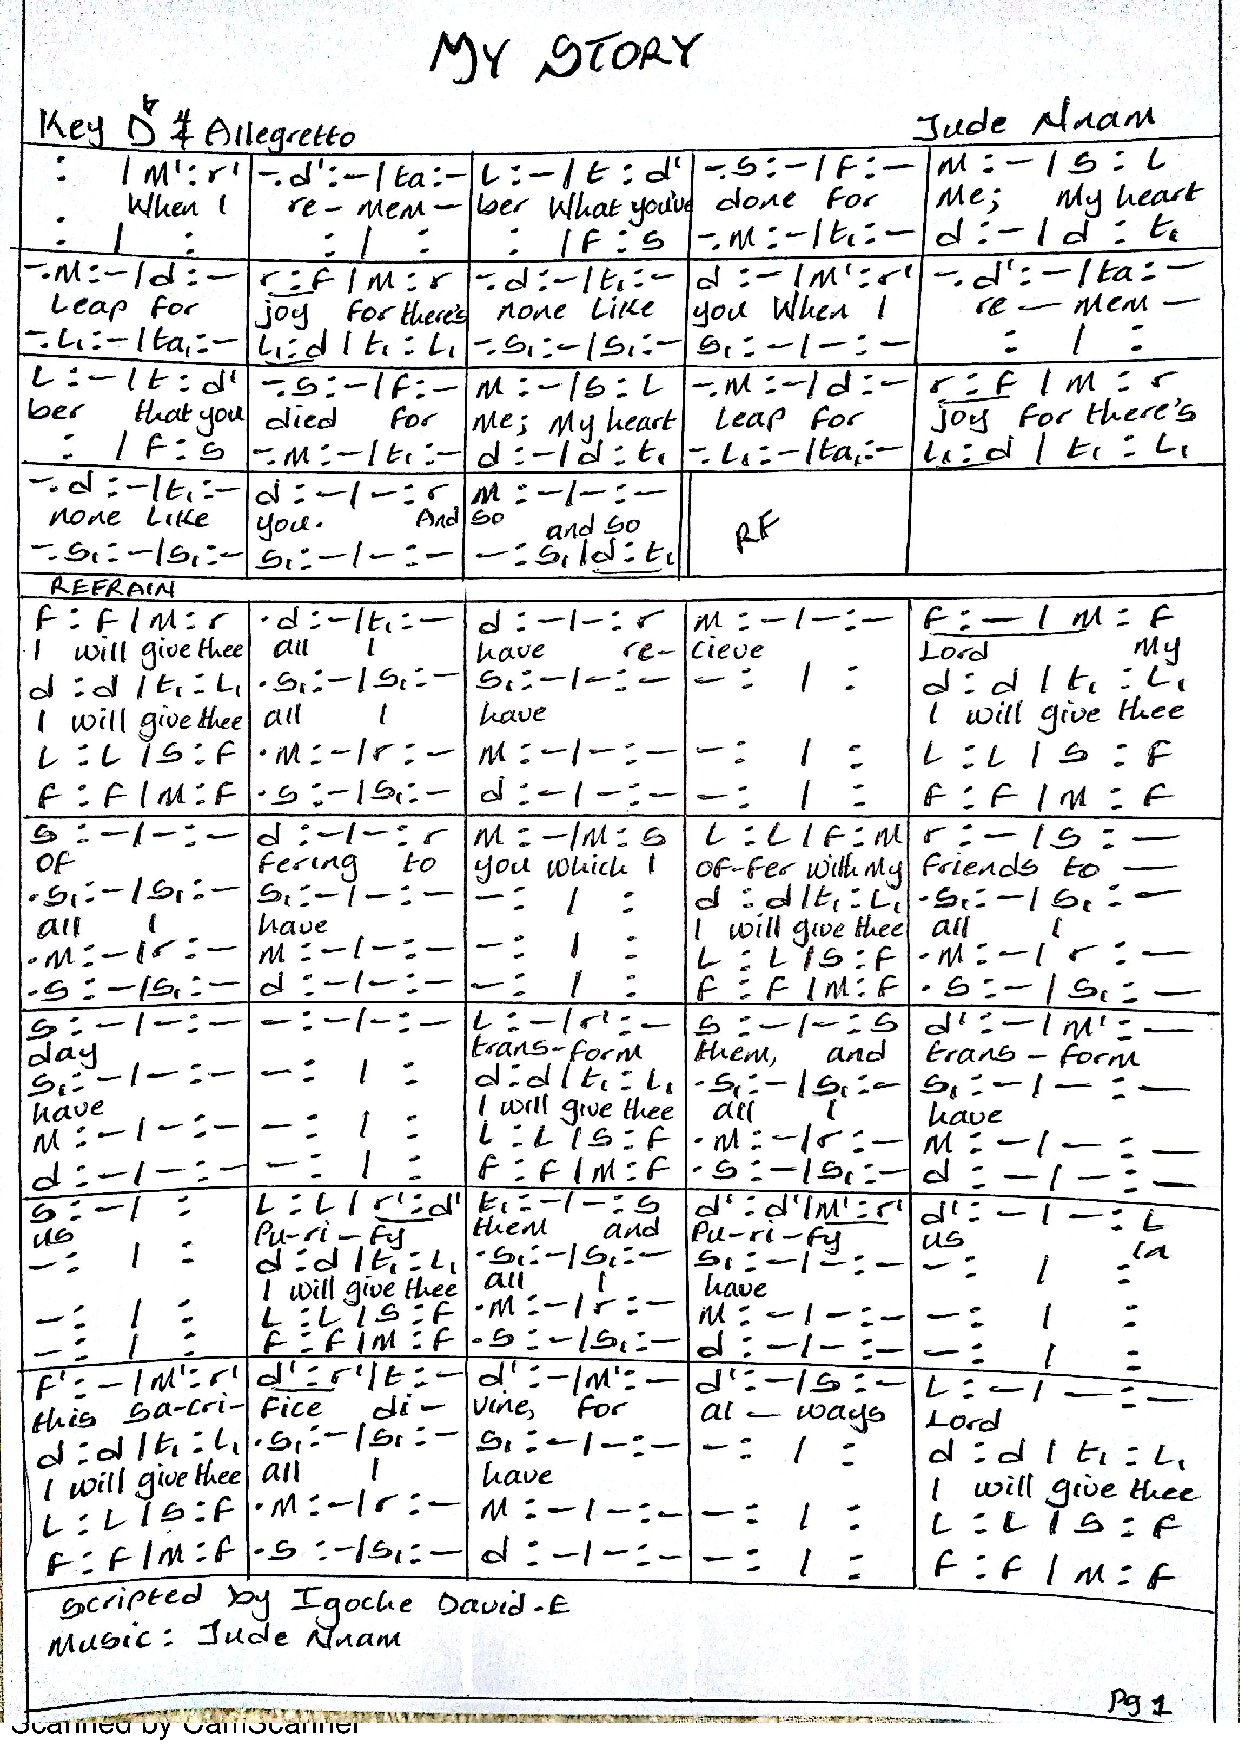 MY STORY
Key D $ Allegretto
Jude Nnam
: | M':r' | -.d':-|ta:- | L:-|t:d' | -.S:-|F:- | M:-|S:L
When I re-mem- ber What you've done for Me; My heart
: | : | : | : | : |F:S | -.M:-|t₁:- | d:-|d:t₁
-.M:-|d:- | r:F|M:r | -.d:-|t₁:- | d:-|M':r' | -.d':-|ta:-
Leap for joy for there's none Like you When I re-mem-
-.L₁:-|ta₁:- | L₁:d|t₁:L₁ | -.S₁:-|S₁:- | S₁:-|-:- | : | :
L:-|t:d' | -.S:-|F:- | M:-|S:L | -.M:-|d:- | r:F|M:r
ber that you died for Me; My heart Leap for joy for there's
: |F:S | -.M:-|t₁:- | d:-|d:t₁ | -.L₁:-|ta₁:- | L₁:d|t₁:L₁
-.d:-|t₁:- | d:-|-:r | M:-|-:-
none Like you. And so and so RF
-.S₁:-|S₁:- | S₁:-|-:- | -:S₁|d:t₁
REFRAIN
F:F|M:r | .d:-|t₁:- | d:-|-:r | M:-|-:- | F:-|M:F
I will give thee all I have re- cieve Lord My
d:d|t₁:L₁ | .S₁:-|S₁:- | S₁:-|-:- | -: | : | d:d|t₁:L₁
I will give thee all I have I will give thee
L:L|S:F | .M:-|r:- | M:-|-:- | -: | : | L:L|S:F
F:F|M:F | .S:-|S₁:- | d:-|-:- | -: | : | F:F|M:F
S:-|-:- | d:-|-:r | M:-|M:S | L:L|F:M | r:-|S:-
OF fering to you which I of-fer with My friends to-
.S₁:-|S₁:- | S₁:-|-:- | -: | : | d:d|t₁:L₁ | .S₁:-|S₁:-
all I have I will give thee all I
.M:-|r:- | M:-|-:- | -: | : | L:L|S:F | .M:-|r:-
.S:-|S₁:- | d:-|-:- | -: | : | F:F|M:F | .S:-|S₁:-
S:-|-:- | -:-|-:- | L:-|r':- | S:-|-:S | d':-|M':-
day trans-form them, and trans-form
S₁:-|-:- | -: | : | d:d|t₁:L₁ | .S₁:-|S₁:- | S₁:-|-:-
have I will give thee all I have
M:-|-:- | -: | : | L:L|S:F | .M:-|r:- | M:-|-:-
d:-|-:- | -: | : | F:F|M:F | .S:-|S₁:- | d:-|-:-
S:-| : | L:L|r':d' | t₁:-|-:S | d':d'|M':r' | d':-|-:L
us Pu-ri-fy them and Pu-ri-fy us in
-: | : | d:d|t₁:L₁ | .S₁:-|S₁:- | S₁:-|-:- | -: | :
I will give thee all I have
-: | : | L:L|S:F | .M:-|r:- | M:-|-:- | -: | :
-: | : | F:F|M:F | .S:-|S₁:- | d:-|-:- | -: | :
F':-|M':r' | d':r'|t:- | d':-|M':- | d':-|S:- | L:-|-:-
this sa-cri- fice di- vine, for al-ways Lord
d:d|t₁:L₁ | .S₁:-|S₁:- | S₁:-|-:- | -: | : | d:d|t₁:L₁
I will give thee all I have I will give thee
L:L|S:F | .M:-|r:- | M:-|-:- | -: | : | L:L|S:F
F:F|M:F | .S:-|S₁:- | d:-|-:- | -: | : | F:F|M:F
Scripted by Igoche David-E
Music: Jude Nnam
Pg 1
Scanned by CamScanner